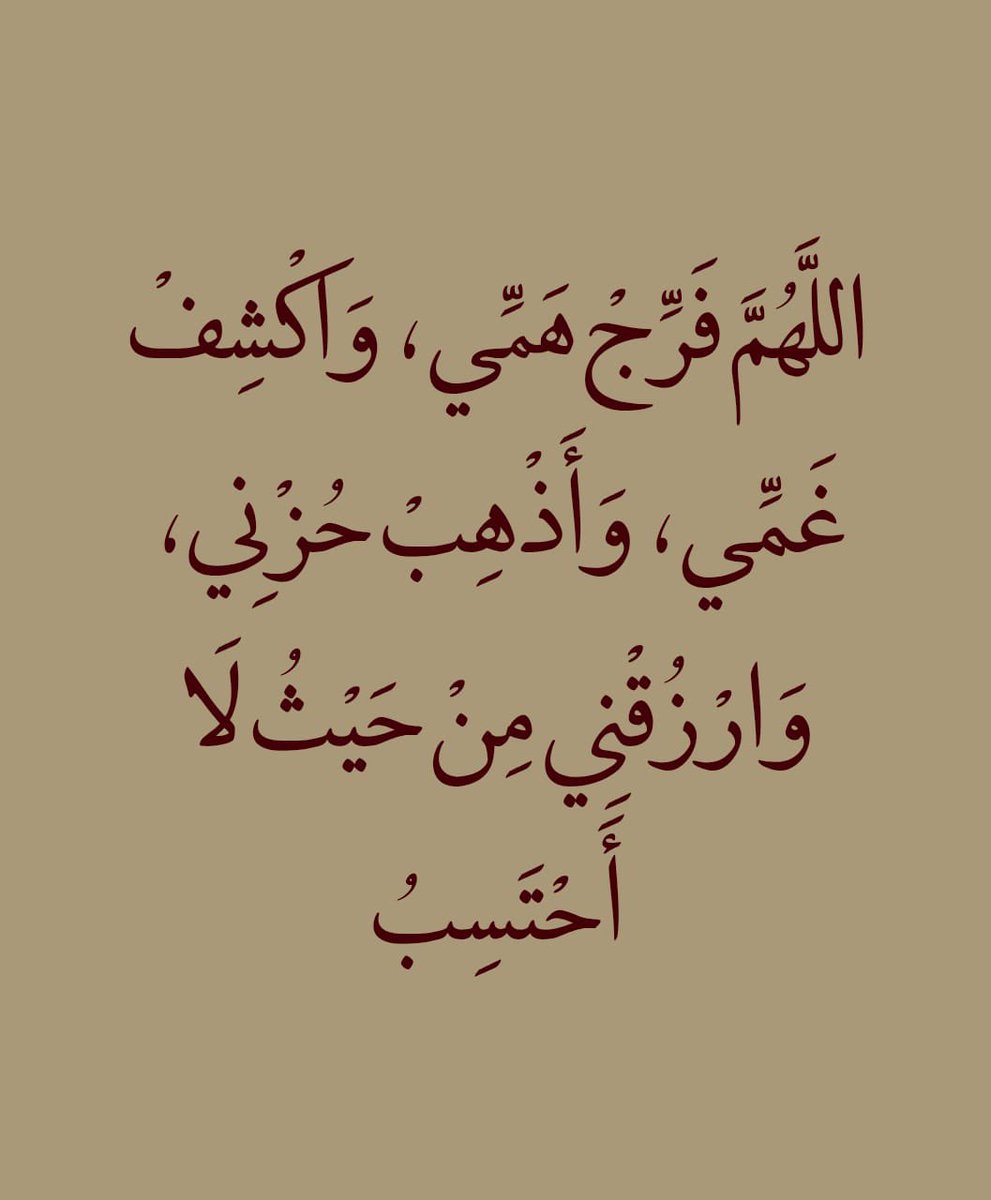 اللَّهُمَّ فَرِّجْ هَمِّي، وَاكْشِفْ
غَمِّي، وَأَذْهِبْ حُزْنِي،
وَارْزُقْنِي مِنْ حَيْثُ لَا
أَحْتَسِبُ